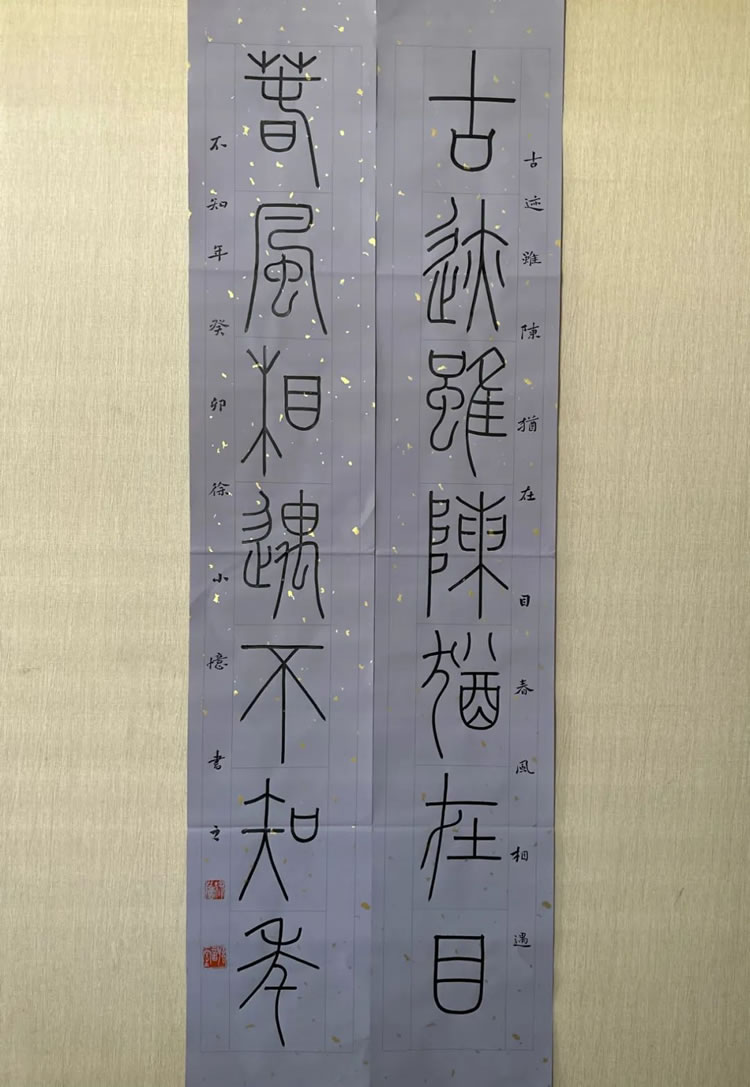 古迹雖陳猶在目春風相遇
古迹雖陳猶在目
春風相遇不知年
不知年癸卯徐小憶書之